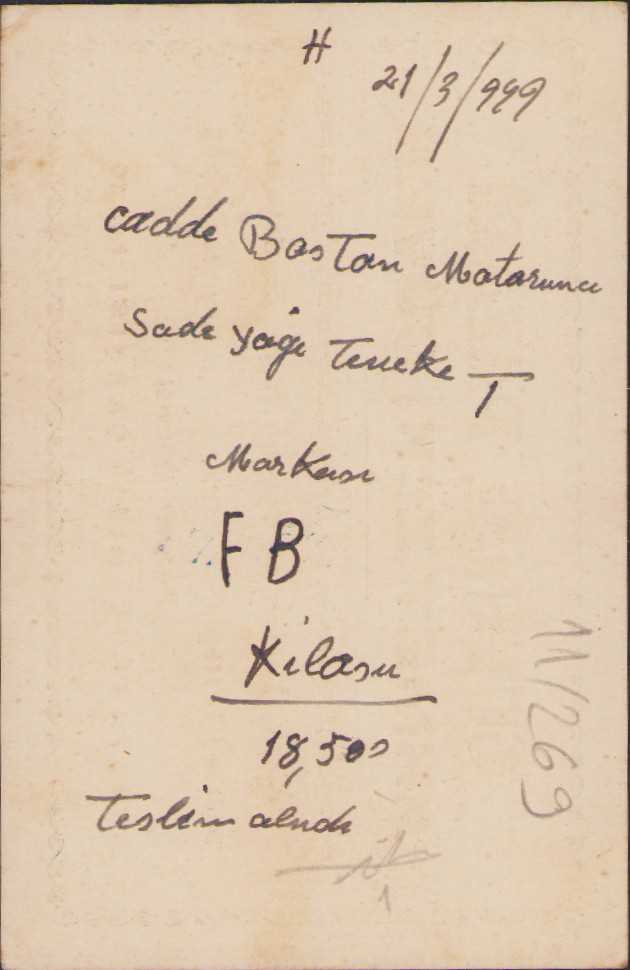 H
21/3/999
cadde Bostan Motoruna
Sade yağı Teneke 1
Markası
FB
Kilosu
18,500
Teslim alındı
11/269
1